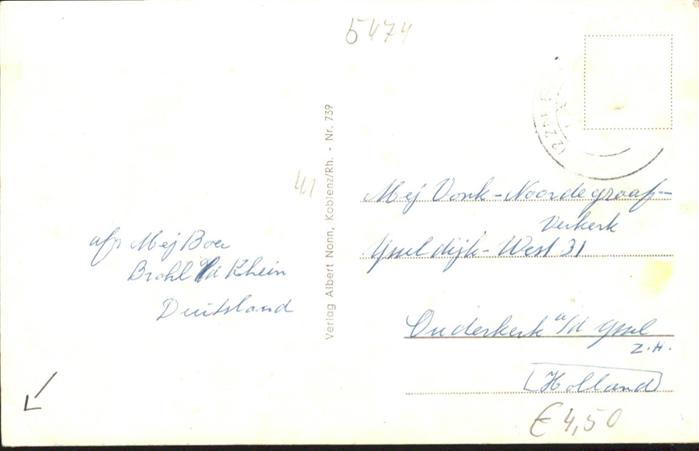 5474
41
afz Mej Boer
Brohl a/d Rhein
Duitsland
Verlag Albert Nonn, Koblenz/Rh. - Nr. 739
Mej Vonk-Noordegraaf-
Verkerk
Ysseldijk-West 31
Ouderkerk a/d Yssel
Z.H.
(Holland)
€ 4,50